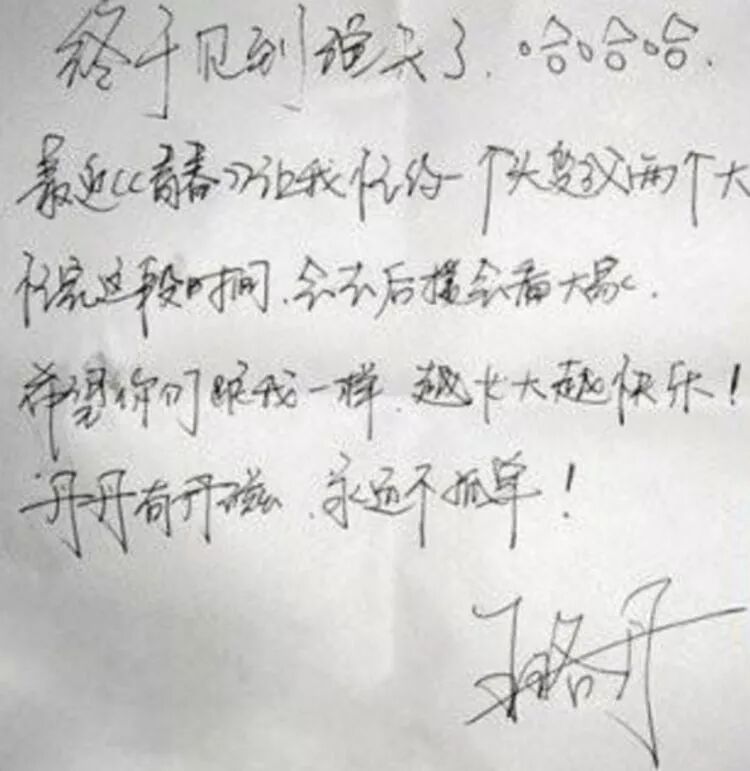 终于见到了.哈哈哈.
最近《青春》让我忙的一个头变成两个大
忙完这段时间.会去后援会看大家.
希望你们跟我一样.越长大越快乐!
丹丹有丹磁.永远不孤单!
王珞丹